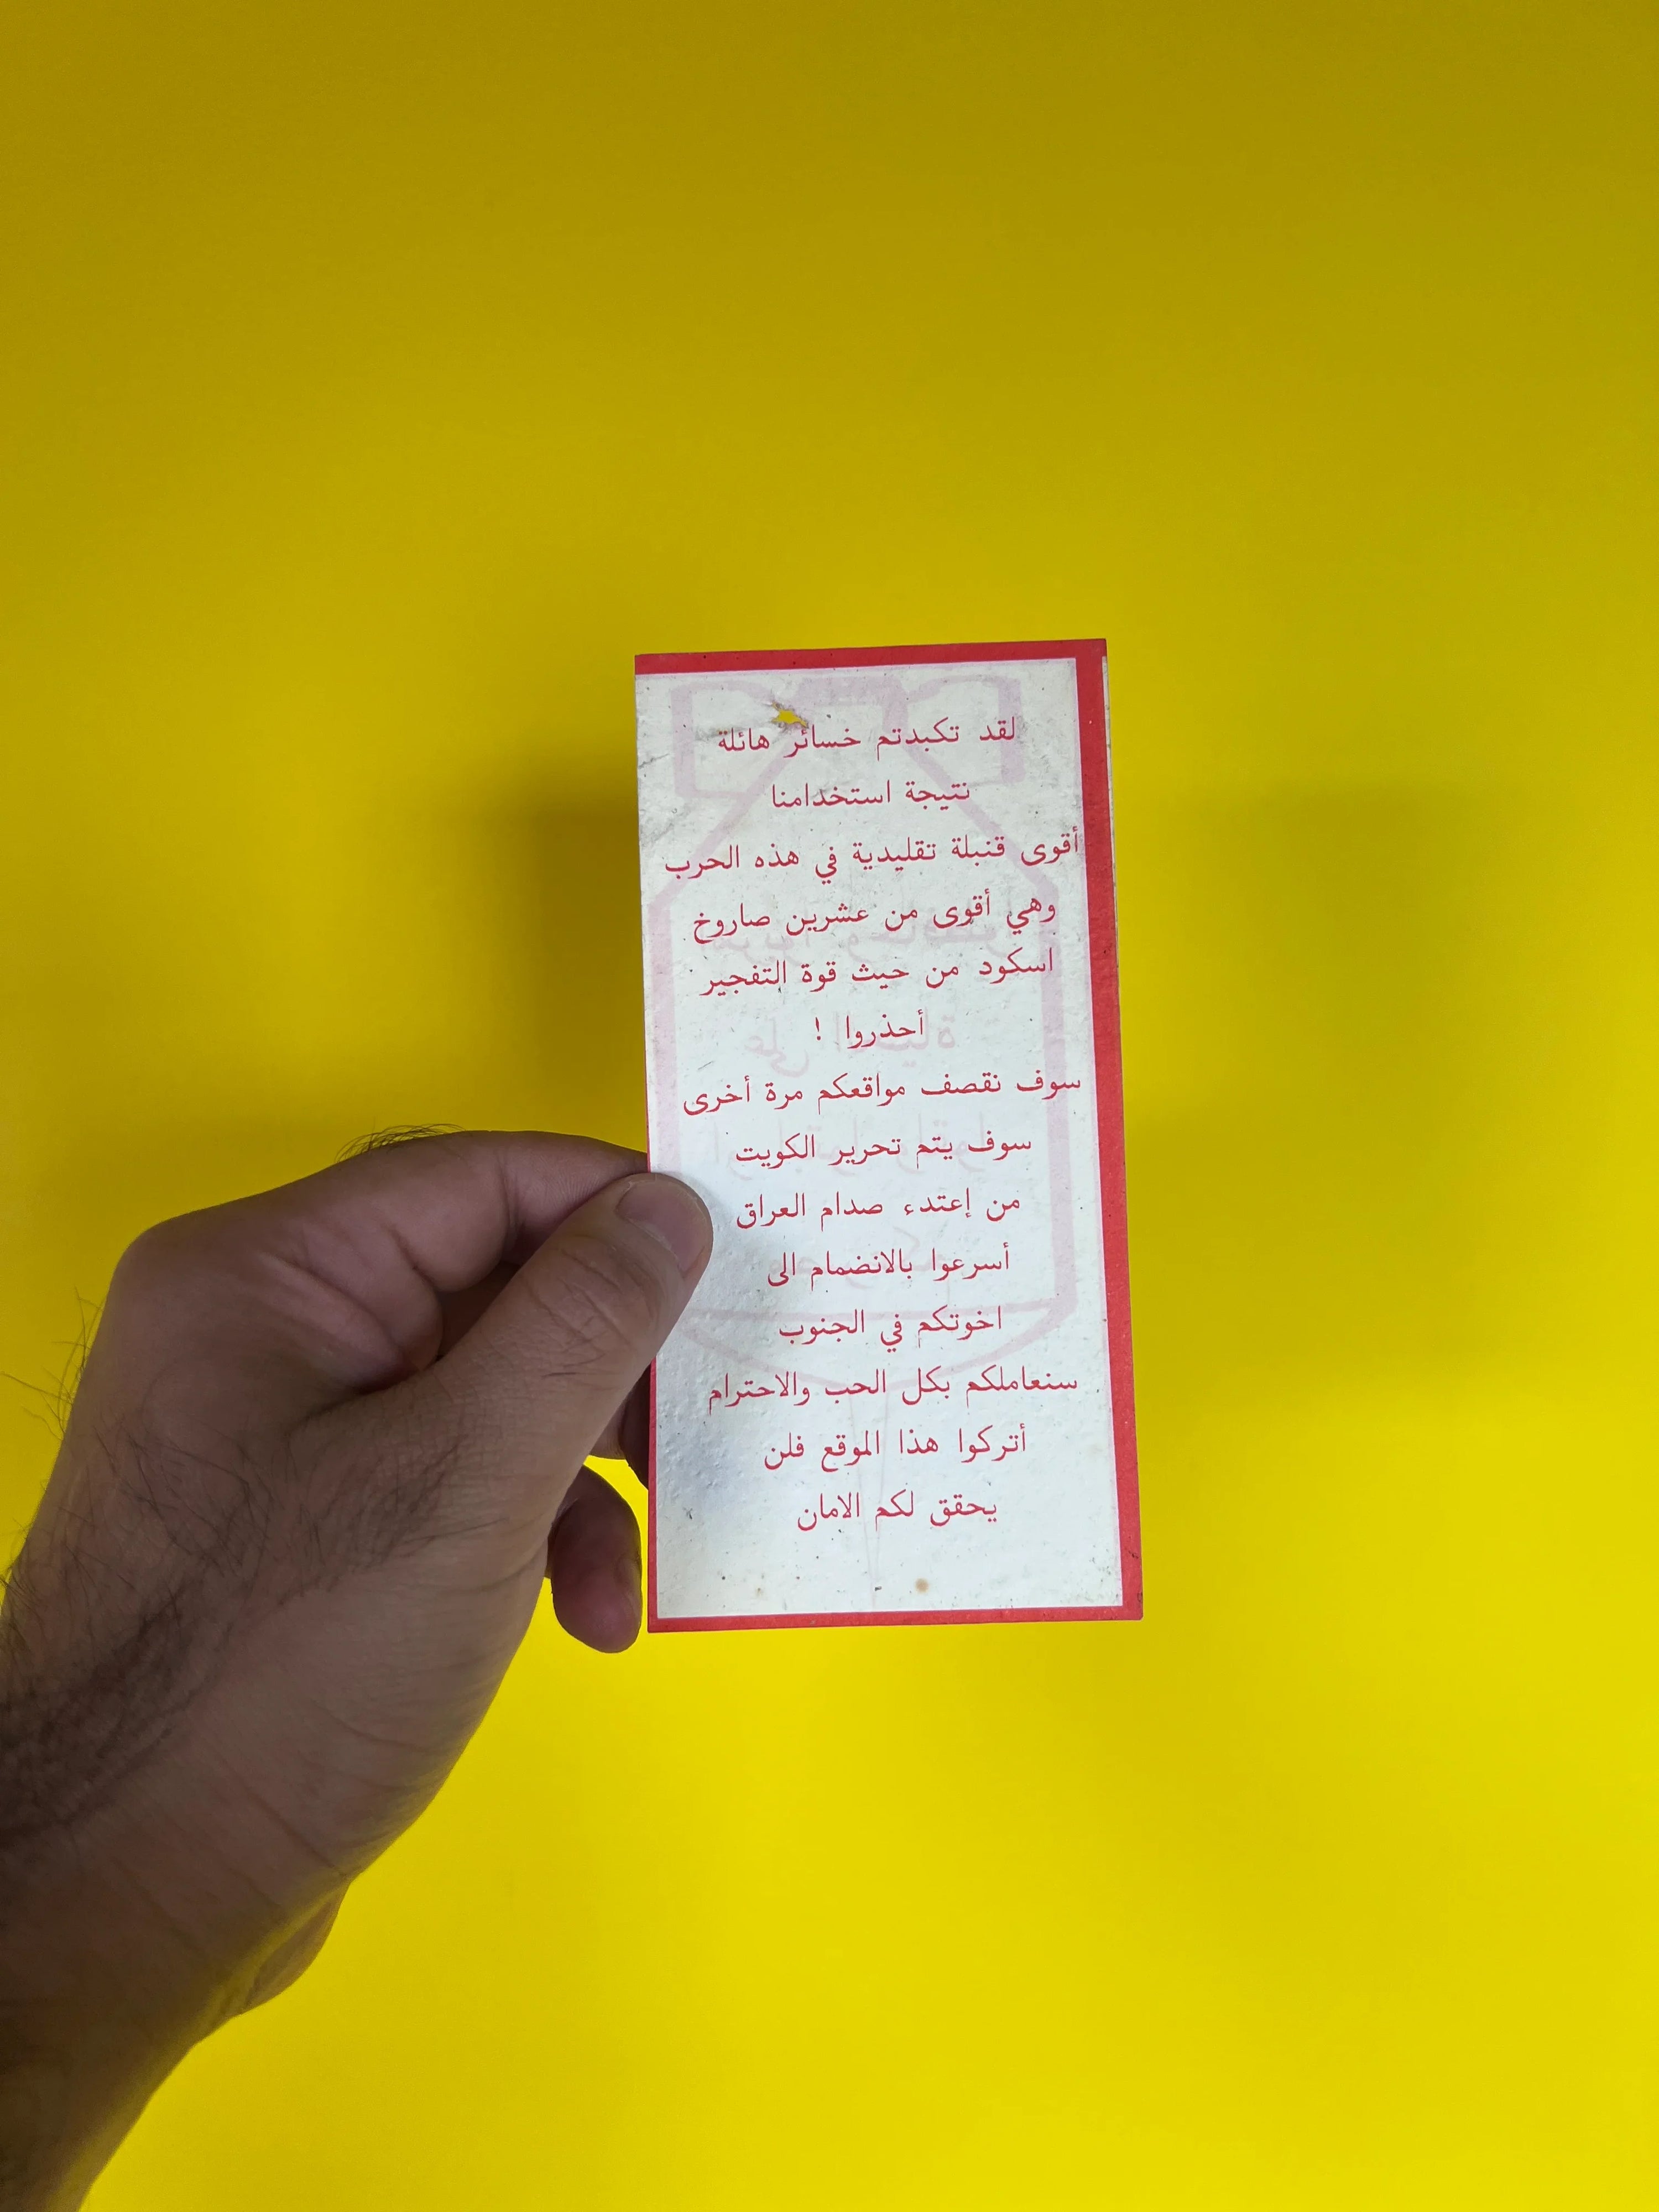 لقد تكبدتم خسائر هائلة
نتيجة استخدامنا
أقوى قنبلة تقليدية في هذه الحرب
وهي أقوى من عشرين صاروخ
اسكود من حيث قوة التفجير
أحذروا !
سوف نقصف مواقعكم مرة أخرى
سوف يتم تحرير الكويت
من إعتدء صدام العراق
أسرعوا بالانضمام الى
اخوتكم في الجنوب
سنعاملكم بكل الحب والاحترام
أتركوا هذا الموقع فلن
يحقق لكم الامان